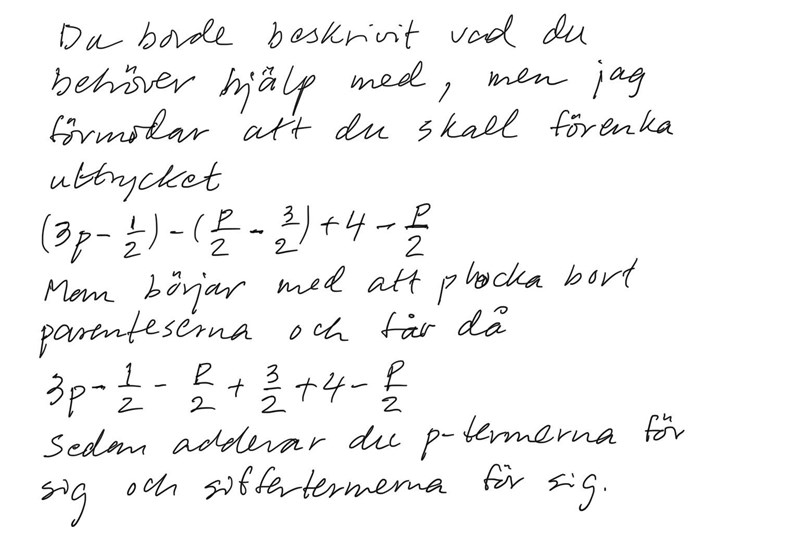 Du borde beskrivit vad du
behöver hjälp med, men jag
förmodar att du skall förenka
uttrycket
(3p - 1/2) - (p/2 - 3/2) + 4 - p/2
Man börjar med att plocka bort
parenteserna och får då
3p - 1/2 - p/2 + 3/2 + 4 - p/2
Sedan adderar du p-termerna för
sig och siffertermerna för sig.